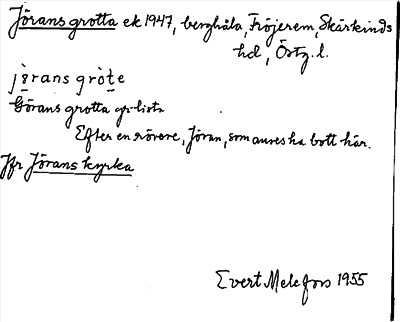 Jörans grotta ek 1947, berghåla, Fröjerem, Skärkinds
hd, Östg.l.
jörans gròte
Görans grotta gr-lista
Efter en rövare, Jöran, som anses ha bott här.
Jfr Jörans kyrka
Evert Melefors 1955